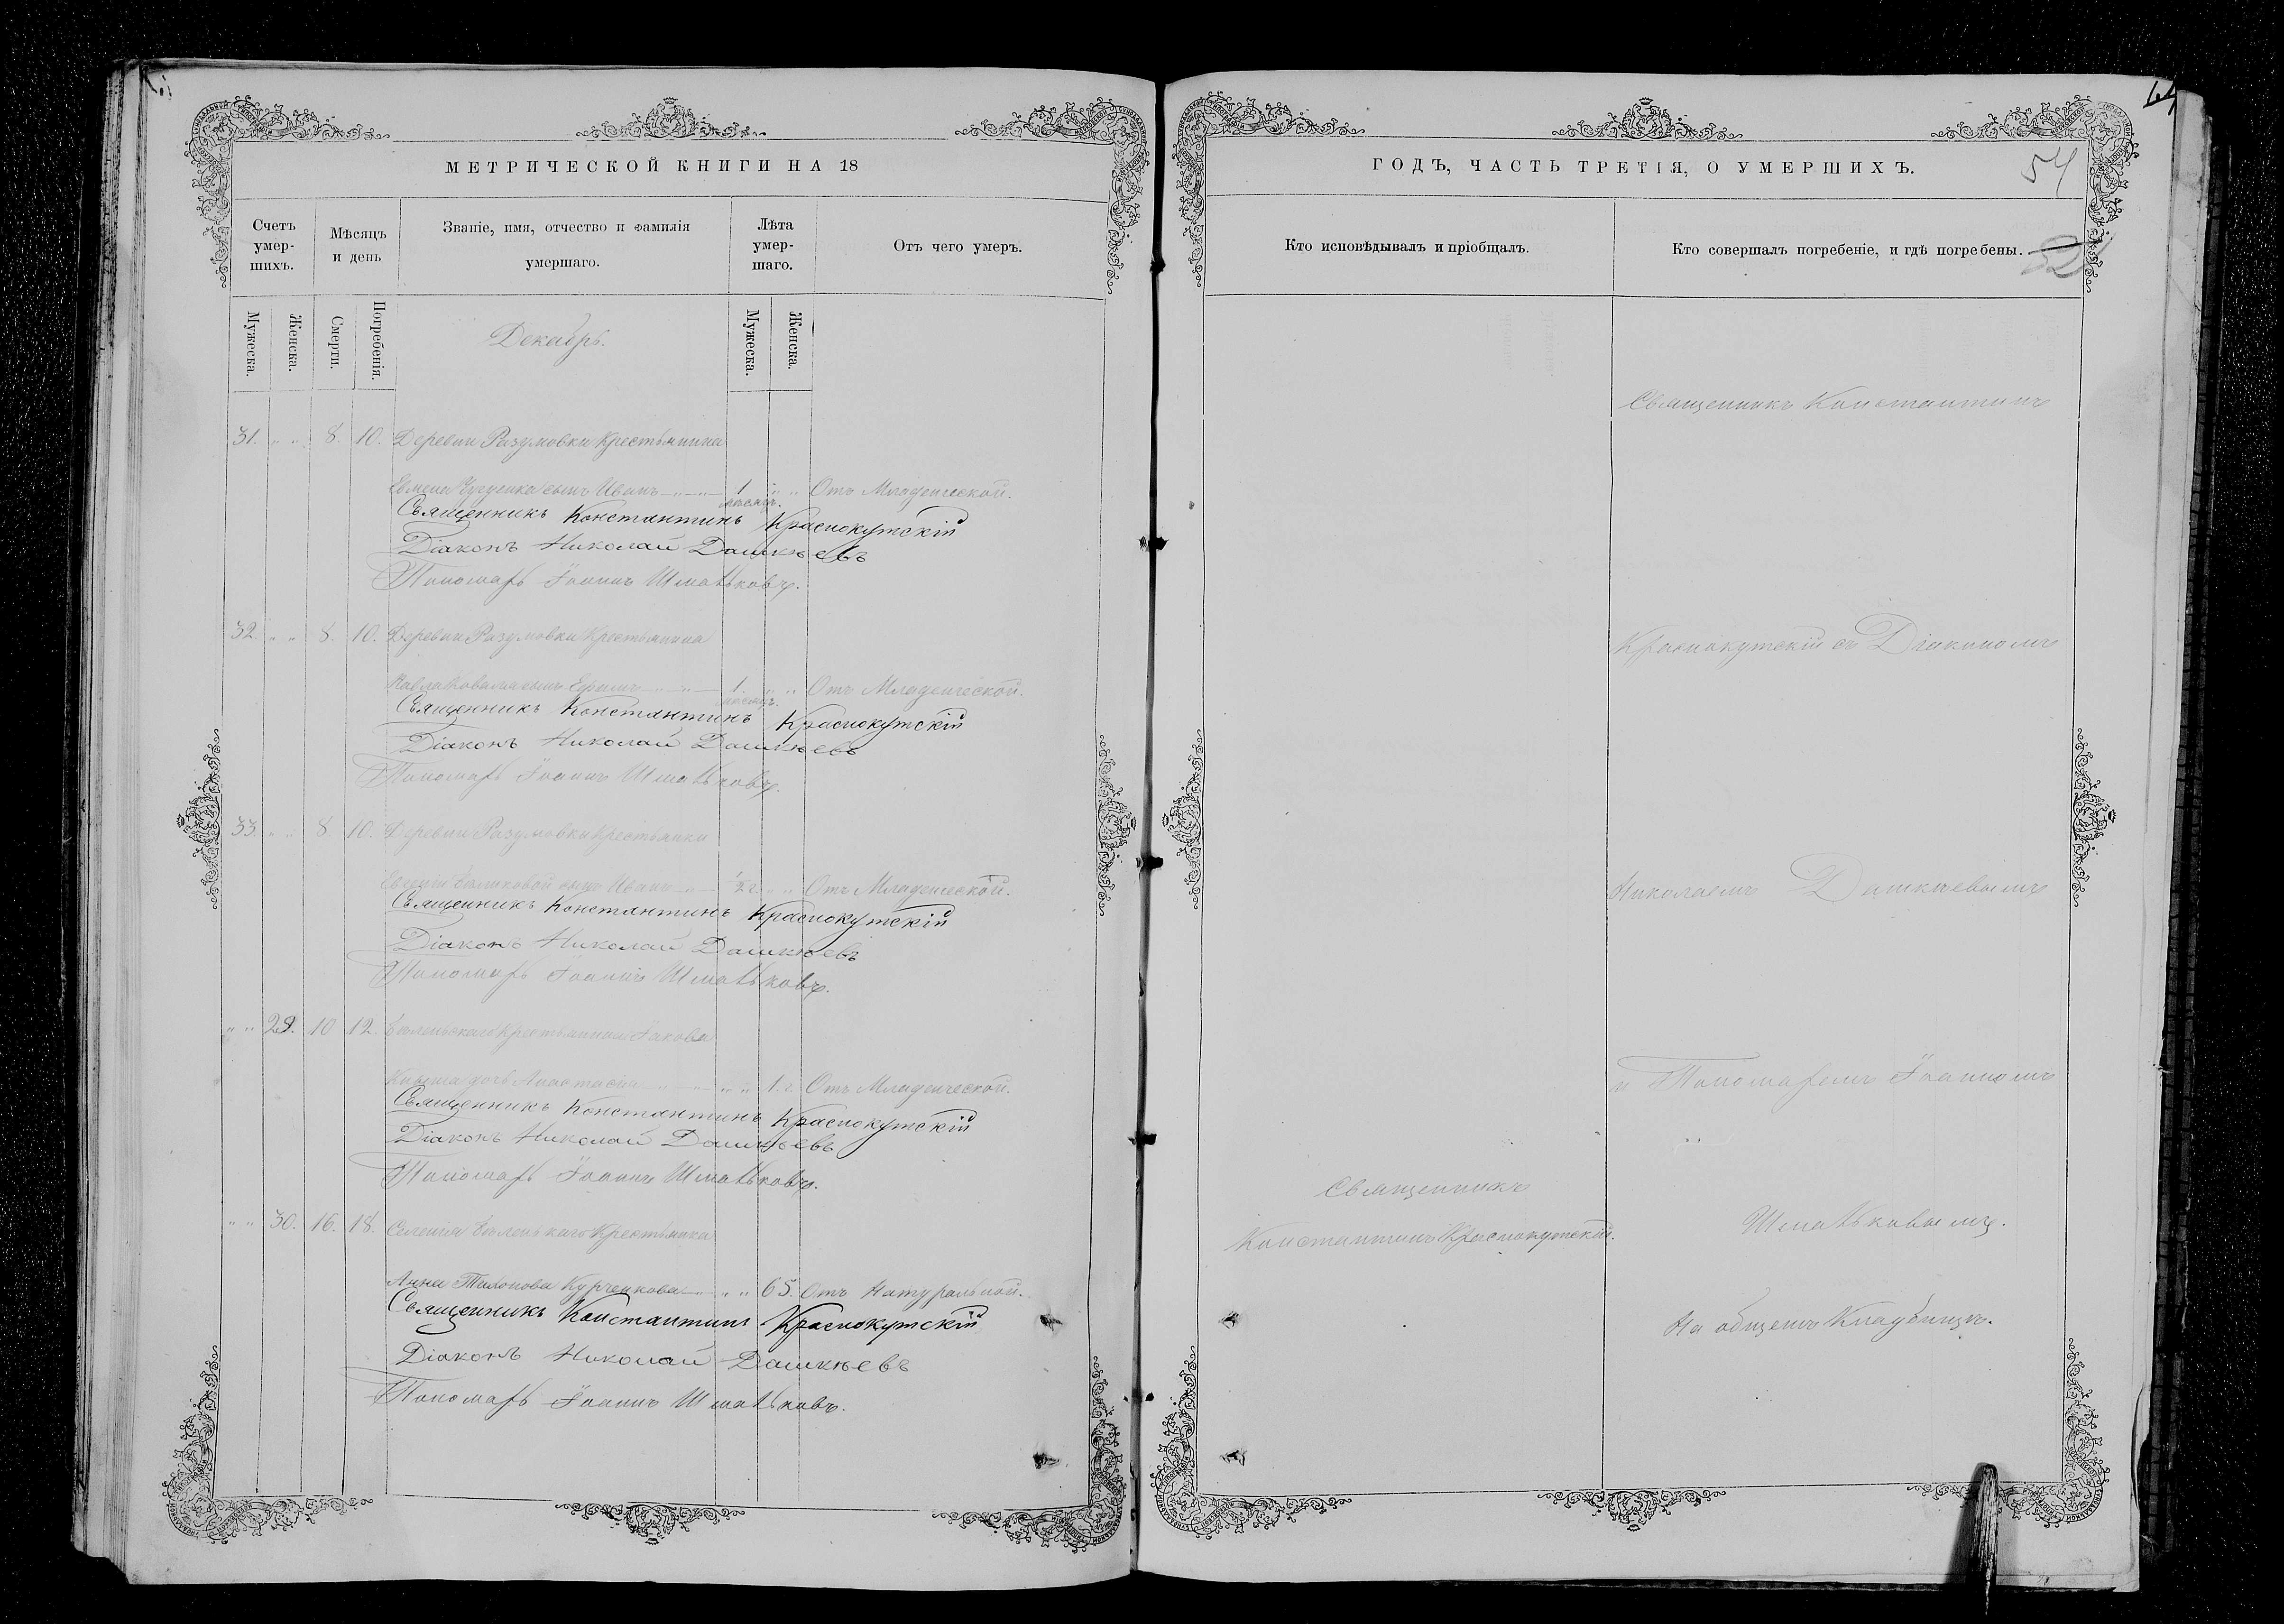 МЕТРИЧЕСКОЙ КНИГИ НА 18
Счетъ умер-шихъ.
Мѣсяцъ и день
Званіе, имя, отчество и фамилія умершаго.
Лѣта умер-шаго.
Отъ чего умеръ.
Мужеска.
Женска.
Смерти.
Погребенія.
Мужеска.
Женска.
Декабрь.
31. " " 8. 10. Деревни Разумовки Крестьянина
сынъ Иванъ 1 " " Отъ Младенческой.
Священникъ Константинъ Краснокутскій
Діаконъ Николай Дашкѣевъ
Пономарь Іоаннъ Шматьковъ.
32. " " 8. 10. Деревни Разумовки Крестьянина
сынъ 1. " " Отъ Младенческой.
Священникъ Константинъ Краснокутскій
Діаконъ Николай Дашкѣевъ
Пономарь Іоаннъ Шматьковъ.
33. " " 8 10. Деревни Разумовки Крестьянки
сынъ Иванъ " " Отъ Младенческой.
Священникъ Константинъ Краснокутскій
Діаконъ Николай Дашкѣевъ
Пономарь Іоаннъ Шматьковъ.
" " 29. 10 12. Крестьянина Іакова
дочь Анастасія " " 1. г. Отъ Младенческой.
Священникъ Константинъ Краснокутскій
Діаконъ Николай Дашкѣевъ
Пономарь Іоаннъ Шматьковъ.
" " 30. 16. 18. Селенія Крестьянка
Анна Курченкова " " 65. Отъ Натуральной.
Священникъ Константинъ Краснокутскій
Діаконъ Николай Дашкѣевъ
Пономарь Іоаннъ Шматьковъ.
ГОДЪ, ЧАСТЬ ТРЕТІЯ, О УМЕРШИХЪ.
54
Кто исповѣдывалъ и пріобщалъ.
Кто совершалъ погребеніе, и гдѣ погребены.
Священникъ Константинъ
Краснокутскій съ Діакономъ
Николаемъ Дашкѣевымъ
и Пономаремъ Іоанномъ
Шматьковымъ.
На общемъ Кладбищѣ.
Священникъ
Константинъ Краснокутскій.